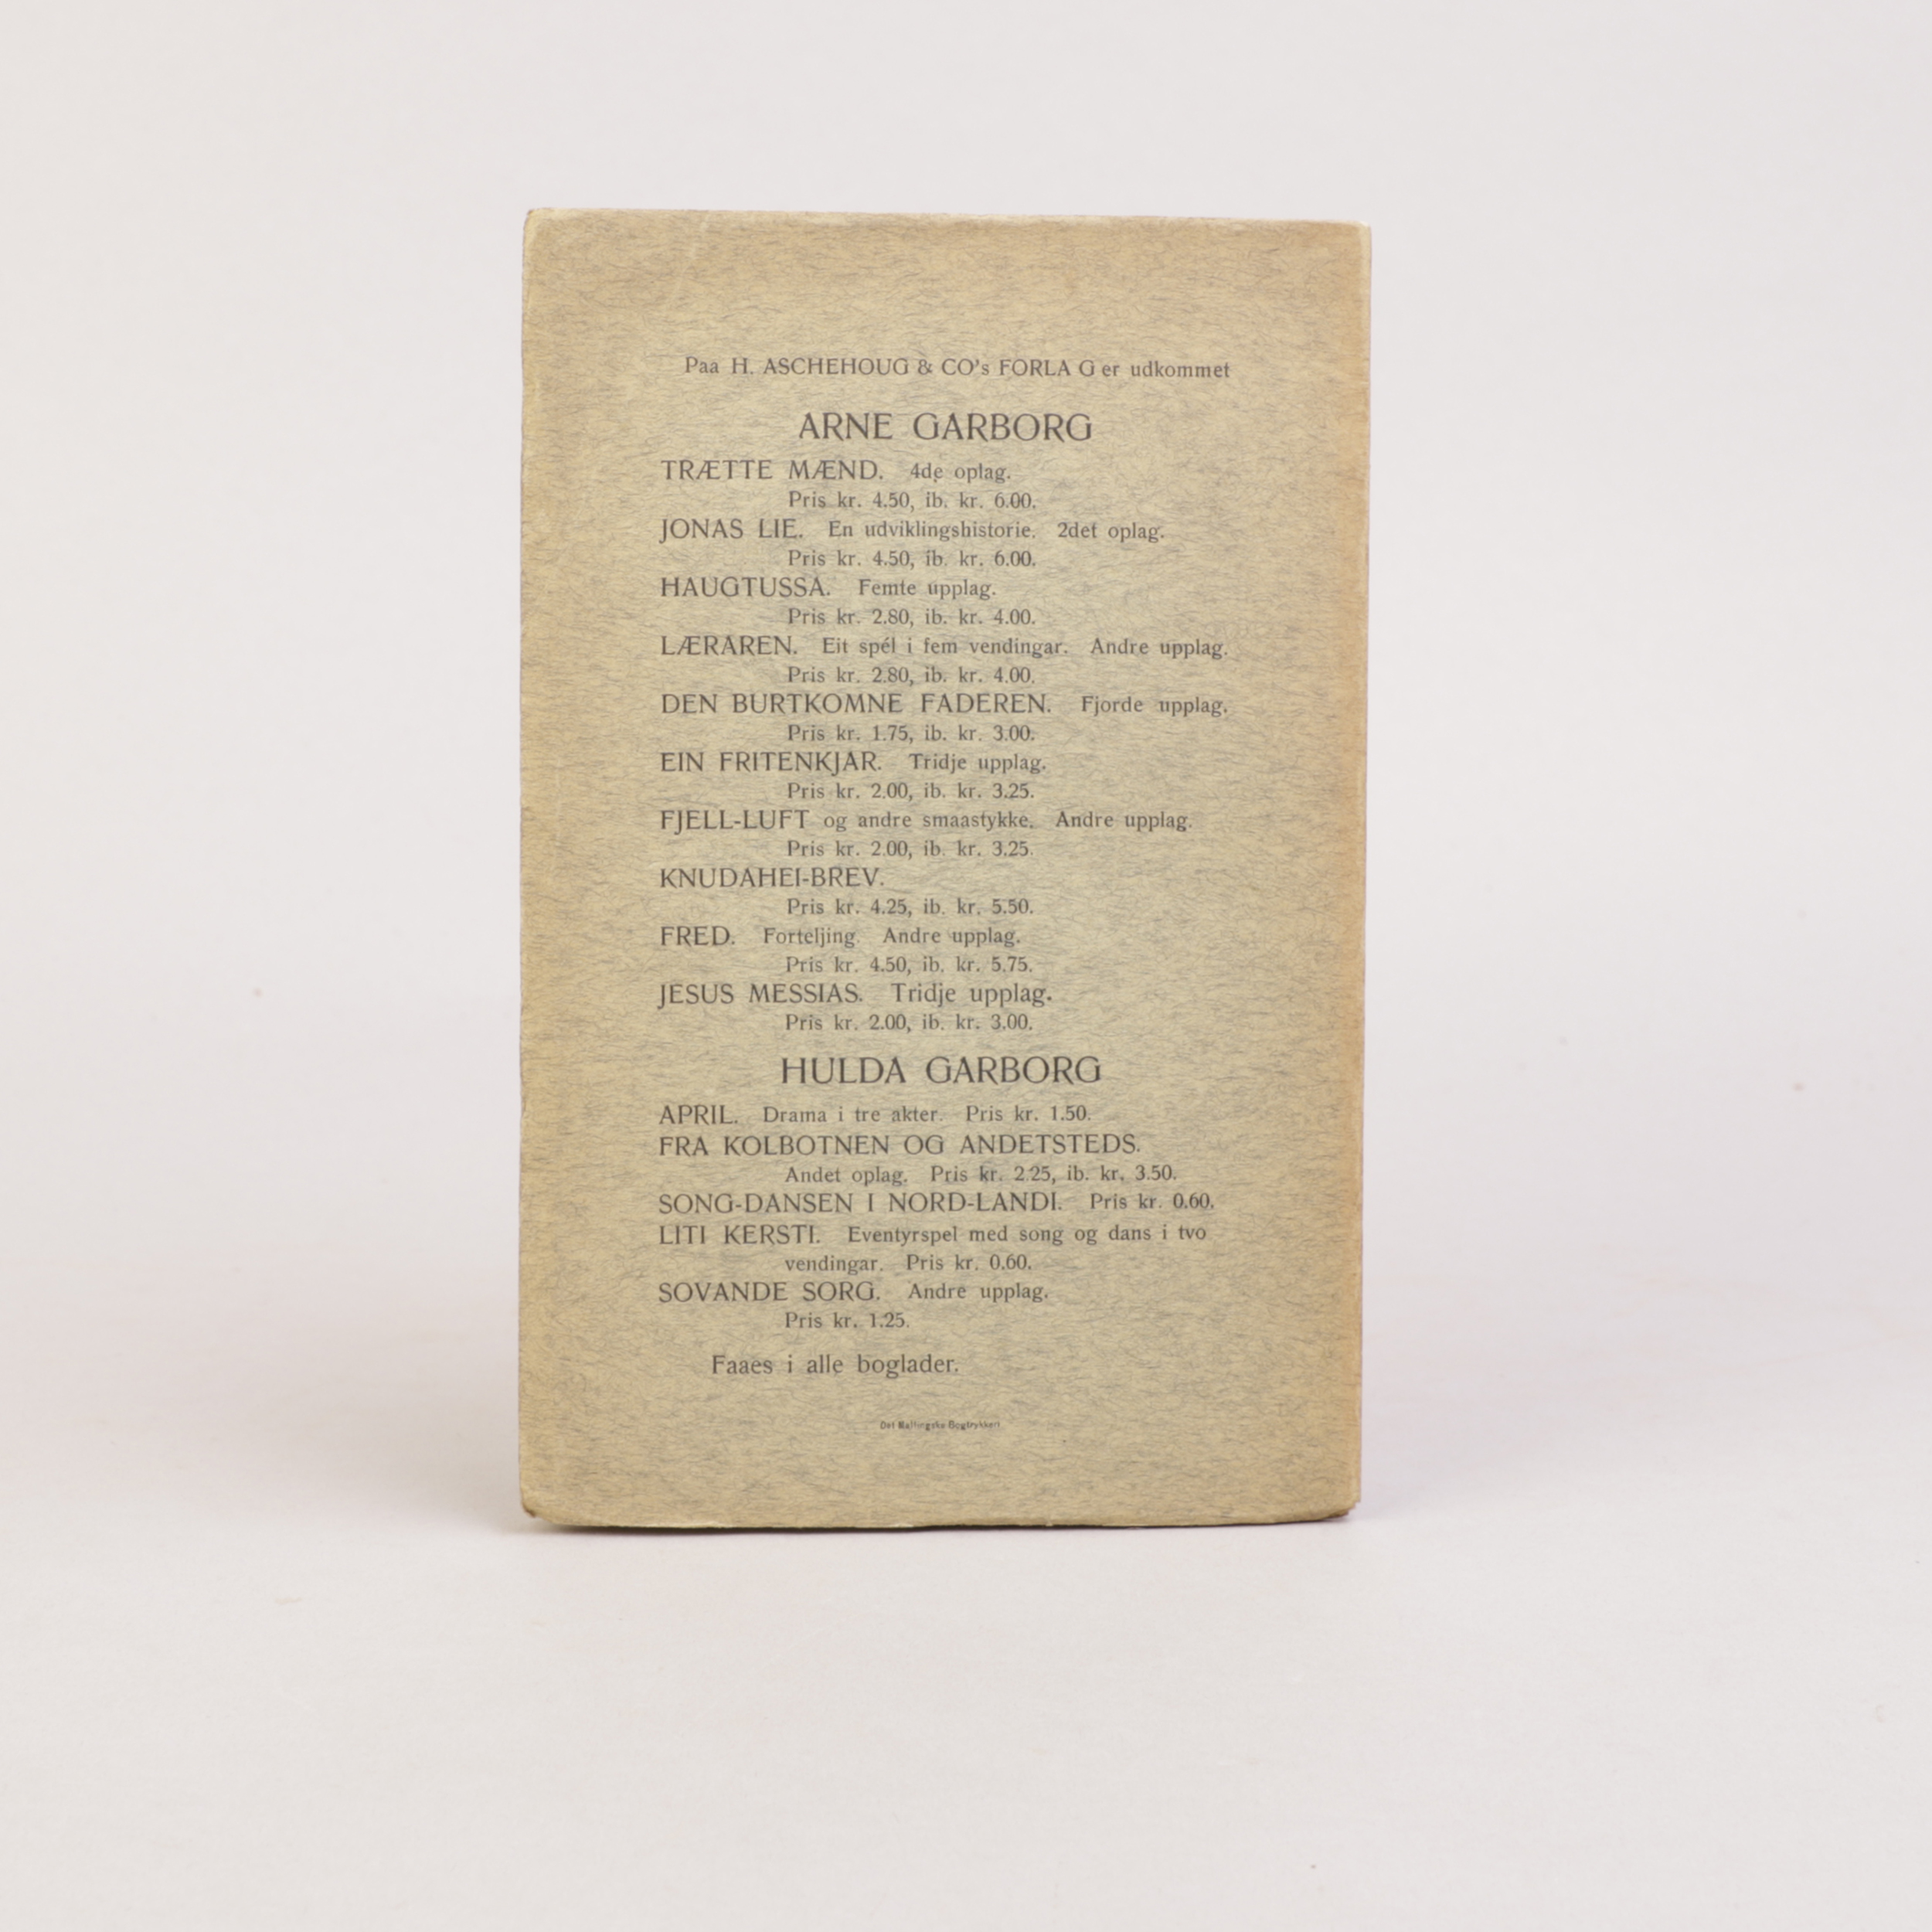 Paa H. ASCHEHOUG & CO's FORLA G er udkommet
ARNE GARBORG
TRÆTTE MÆND. 4de oplag.
Pris kr. 4.50, ib. kr. 6.00.
JONAS LIE. En udviklingshistorie. 2det oplag.
Pris kr. 4.50, ib. kr. 6.00.
HAUGTUSSA. Femte upplag.
Pris kr. 2.80, ib. kr. 4.00.
LÆRAREN. Eit spél i fem vendingar. Andre upplag.
Pris kr. 2.80, ib. kr. 4.00.
DEN BURTKOMNE FADEREN. Fjorde upplag.
Pris kr. 1.75, ib. kr. 3.00.
EIN FRITENKJAR. Tridje upplag.
Pris kr. 2.00, ib. kr. 3.25.
FJELL-LUFT og andre smaastykke. Andre upplag.
Pris kr. 2.00, ib. kr. 3.25.
KNUDAHEI-BREV.
Pris kr. 4.25, ib. kr. 5.50.
FRED. Forteljing. Andre upplag.
Pris kr. 4.50, ib. kr. 5.75.
JESUS MESSIAS. Tridje upplag.
Pris kr. 2.00, ib. kr. 3.00.
HULDA GARBORG
APRIL. Drama i tre akter. Pris kr. 1.50.
FRA KOLBOTNEN OG ANDETSTEDS.
Andet oplag. Pris kr. 2.25, ib. kr. 3.50.
SONG-DANSEN I NORD-LANDI. Pris kr. 0.60.
LITI KERSTI. Eventyrspel med song og dans i tvo
vendingar. Pris kr. 0.60.
SOVANDE SORG. Andre upplag.
Pris kr. 1.25.
Faaes i alle boglader.
Det Mallingske Bogtrykkeri